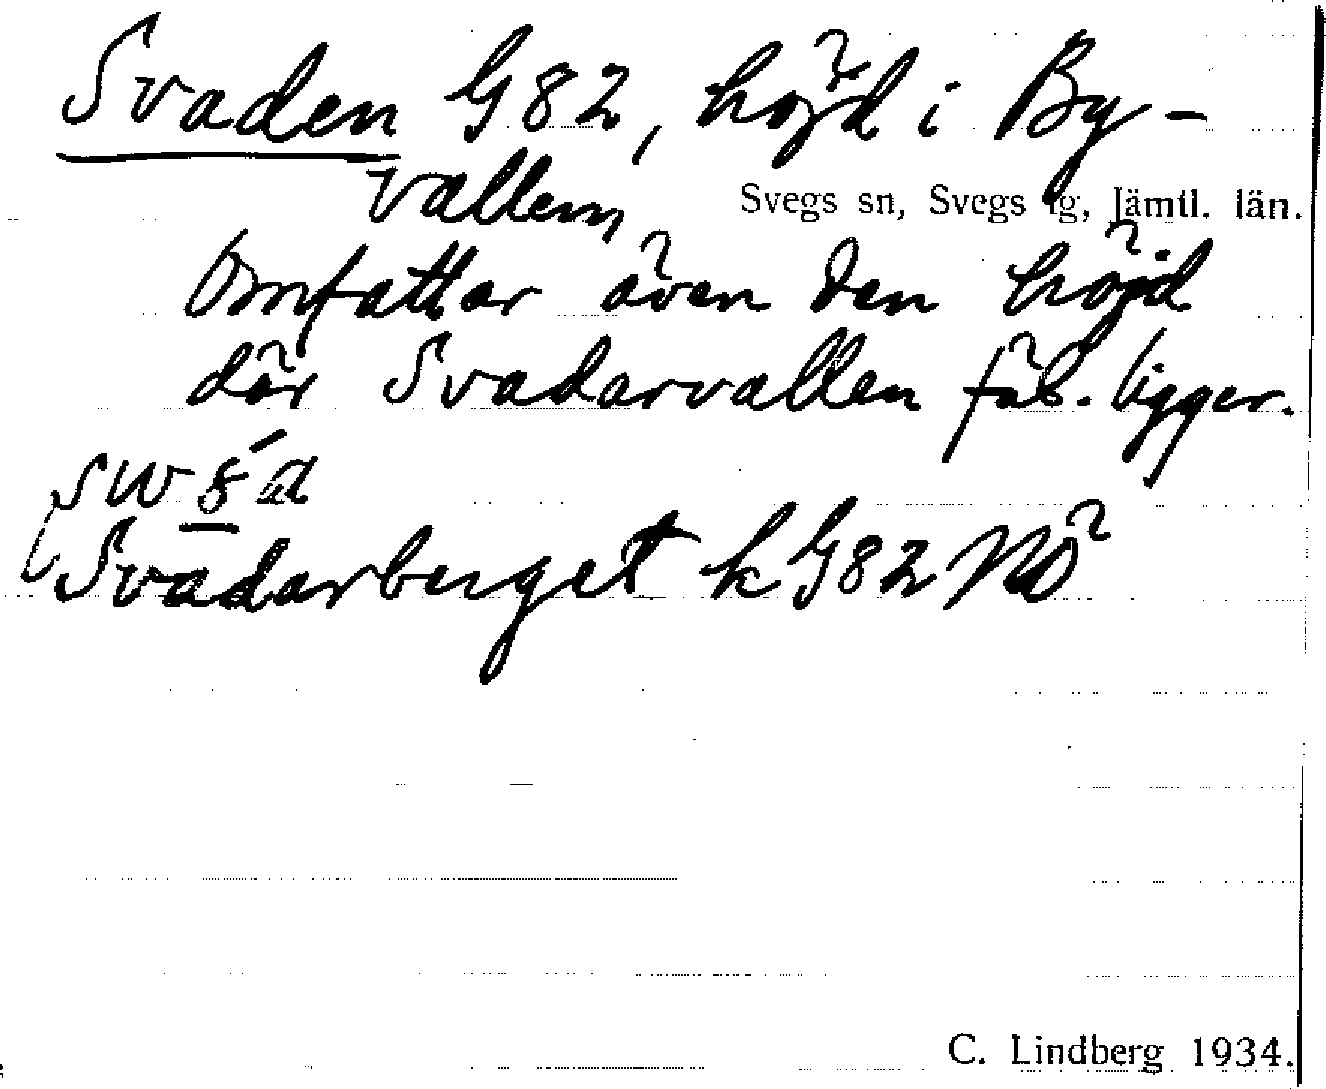 Svaden G82, höjd i By-
vallen,
Svegs sn, Svegs tg, Jämtl. län.
Omfattar även den höjd
där Svadarvallen fäb. ligger.
Svadarberget k G82 NO
C. Lindberg 1934.